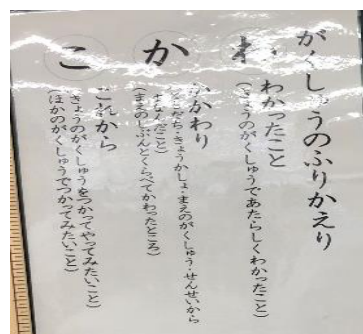 がくしゅうのふりかえり
わ
わかったこと
(きょうのがくしゅうであたらしくわかったこと)
か
かかわり
(ともだち・きょうかしょ・まえのがくしゅう・せんせいから
まなんだこと)
(まえのじぶんとくらべてかわったところ)
こ
これから
(きょうのがくしゅうをつかってやってみたいこと)
(ほかのがくしゅうでつかってみたいこと)